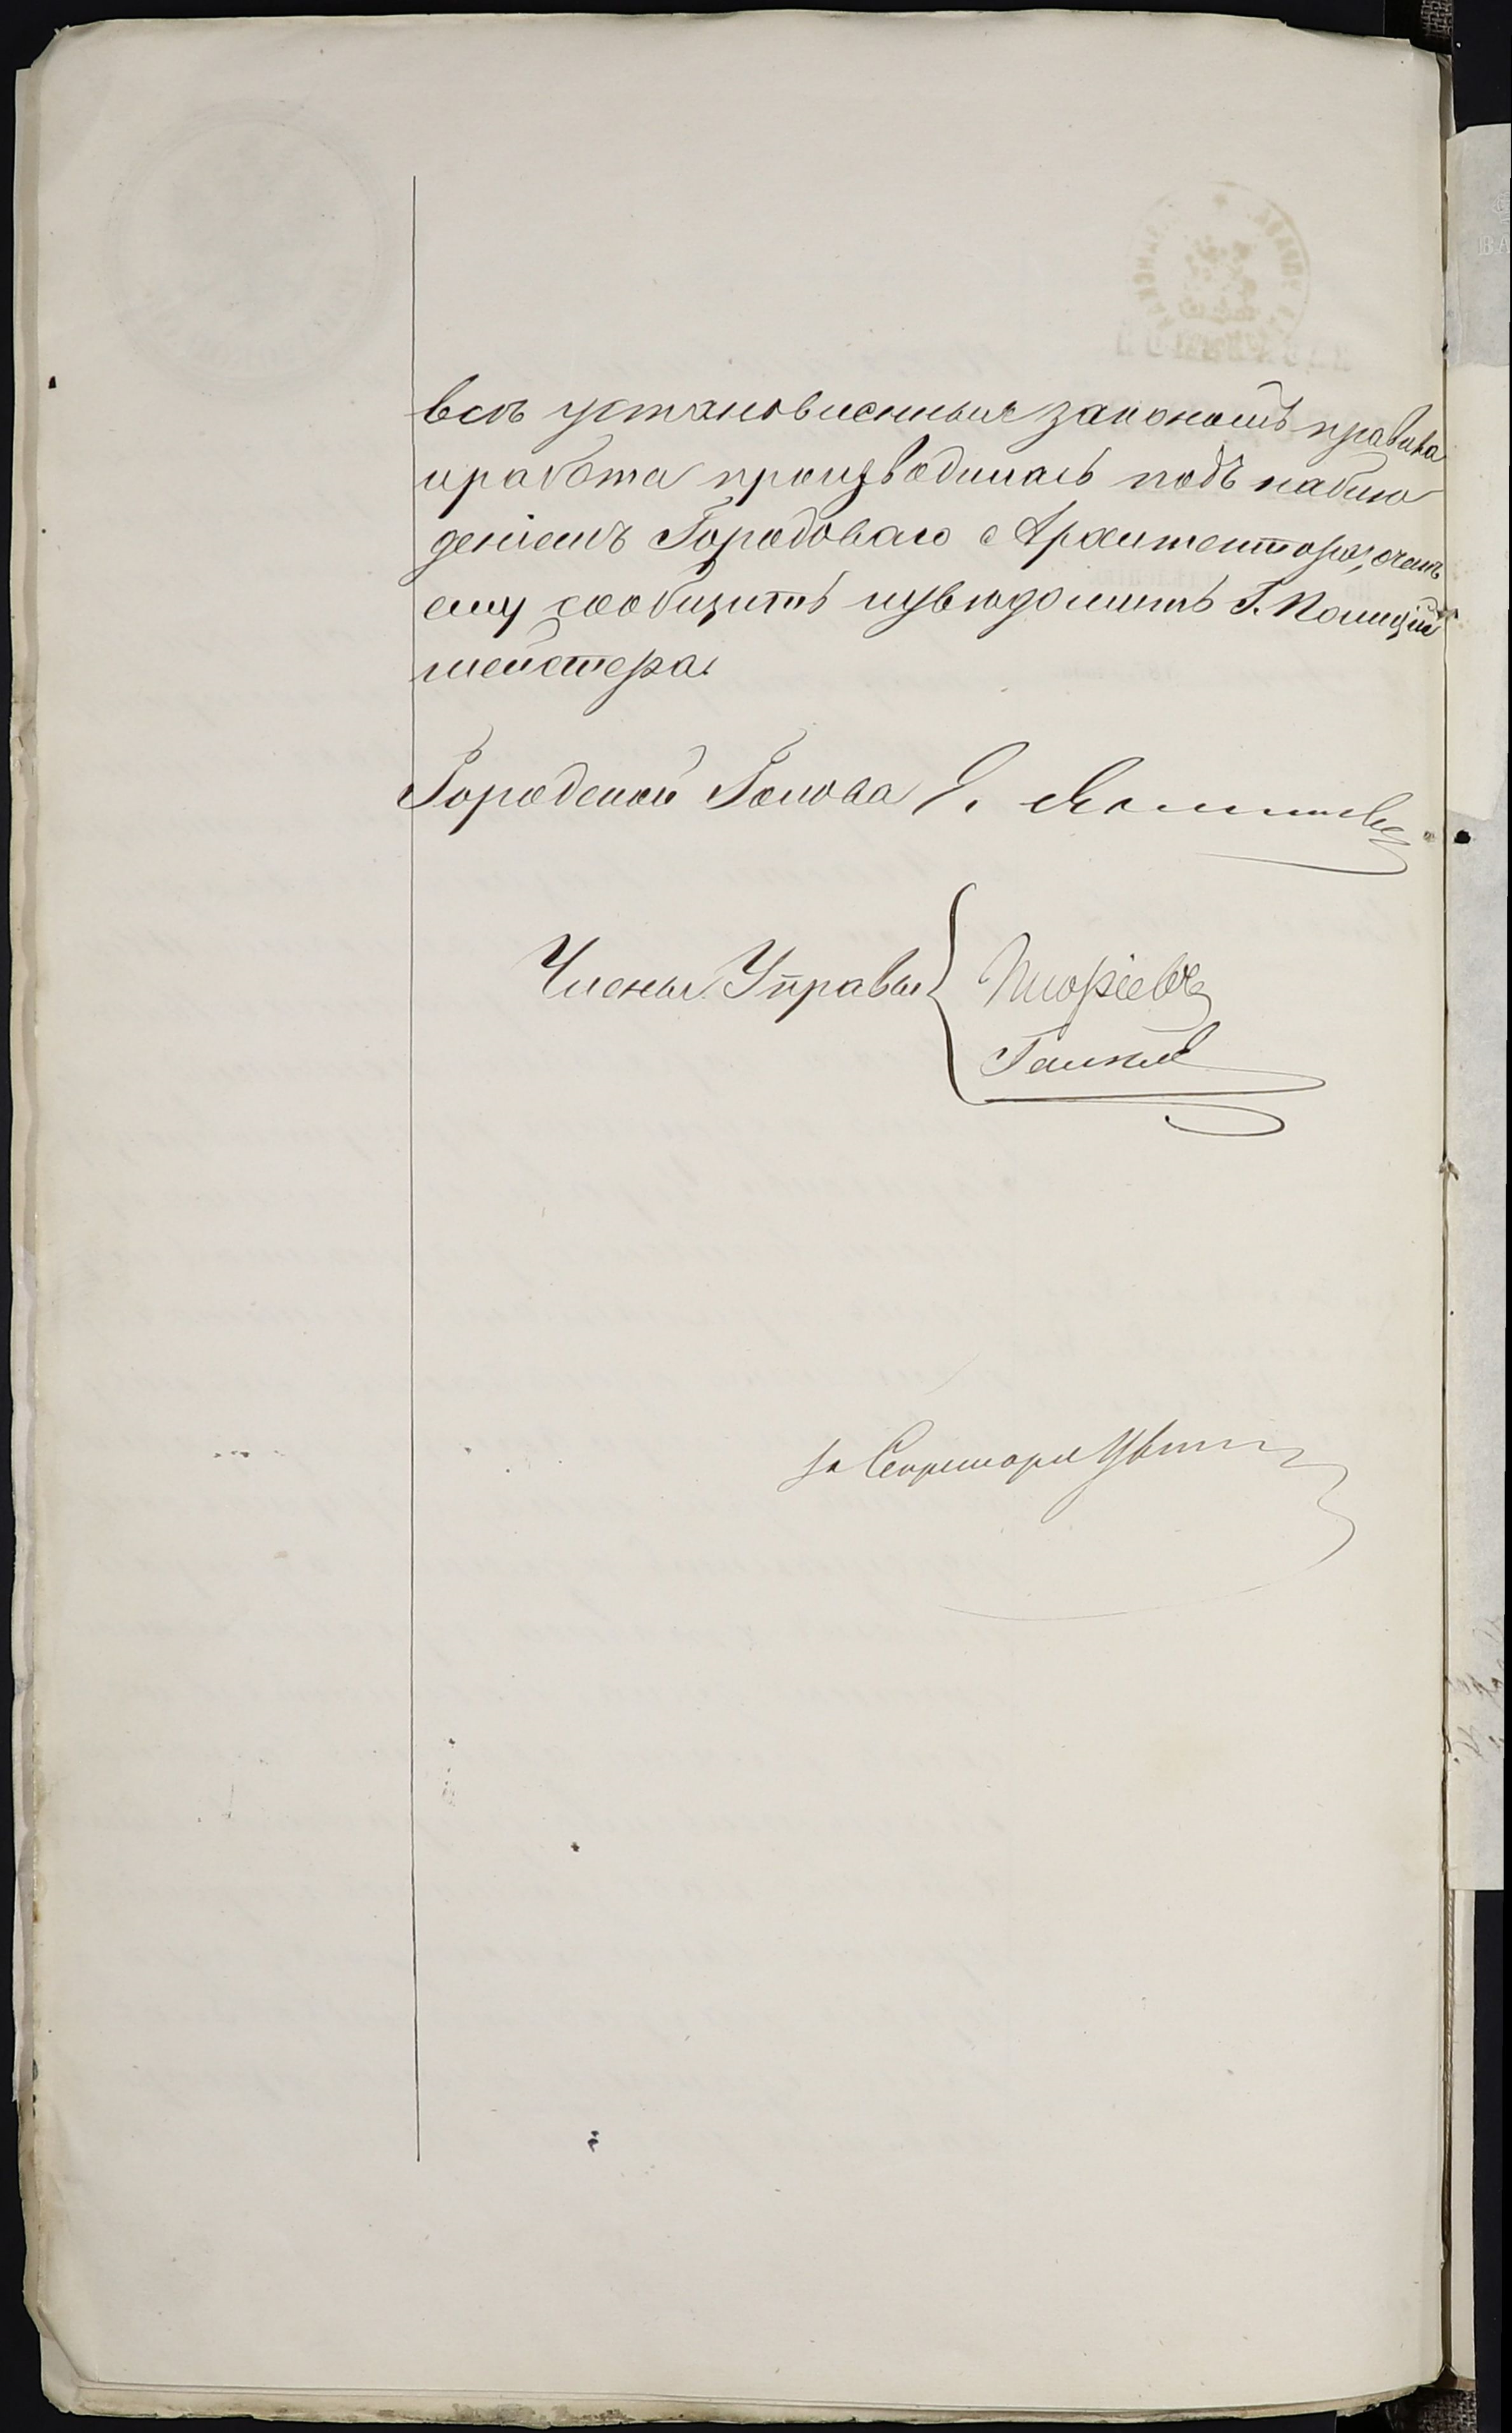 всѣ установленныя закономъ правила
и работа производилась подъ наблю
деніемъ Городоваго Архитектора, о чемъ
ему сообщить и увѣдомить Г. Полицій
мейстера.
Городской Голова Я.
Члены Управы
За Секретаря